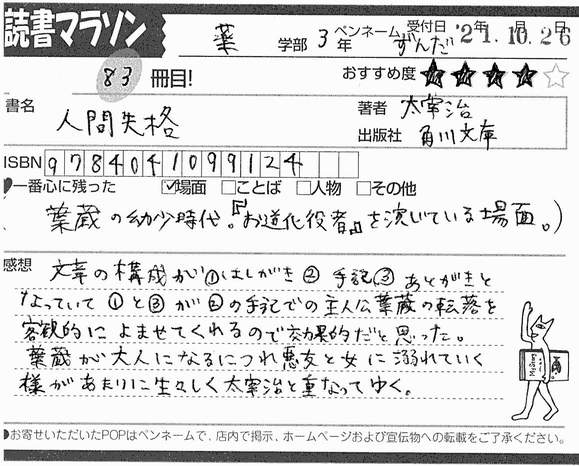 読書マラソン
薬 学部 3年 ペンネーム ずんだ 受付日 '21年10月26日
83 冊目!
おすすめ度 ★★★★☆
書名 人間失格
著者 太宰治
出版社 角川文庫
ISBN 9784041099124
一番心に残った ☑場面 □ことば □人物 □その他
葉蔵の幼少時代。『お道化役者』を演じている場面。)
感想 文章の構成が①はしがき ② 手記 ③ あとがきと
なっていて ① と ③ が ② の手記での主人公葉蔵の転落を
客観的に よませてくれるので効果的だと思った。
葉蔵が大人になるにつれ悪友と女に溺れていく
様があまりに生々しく太宰治と重なってゆく。
お寄せいただいたPOPはペンネームで、店内で掲示、ホームページおよび宣伝物への転載をご了承ください。